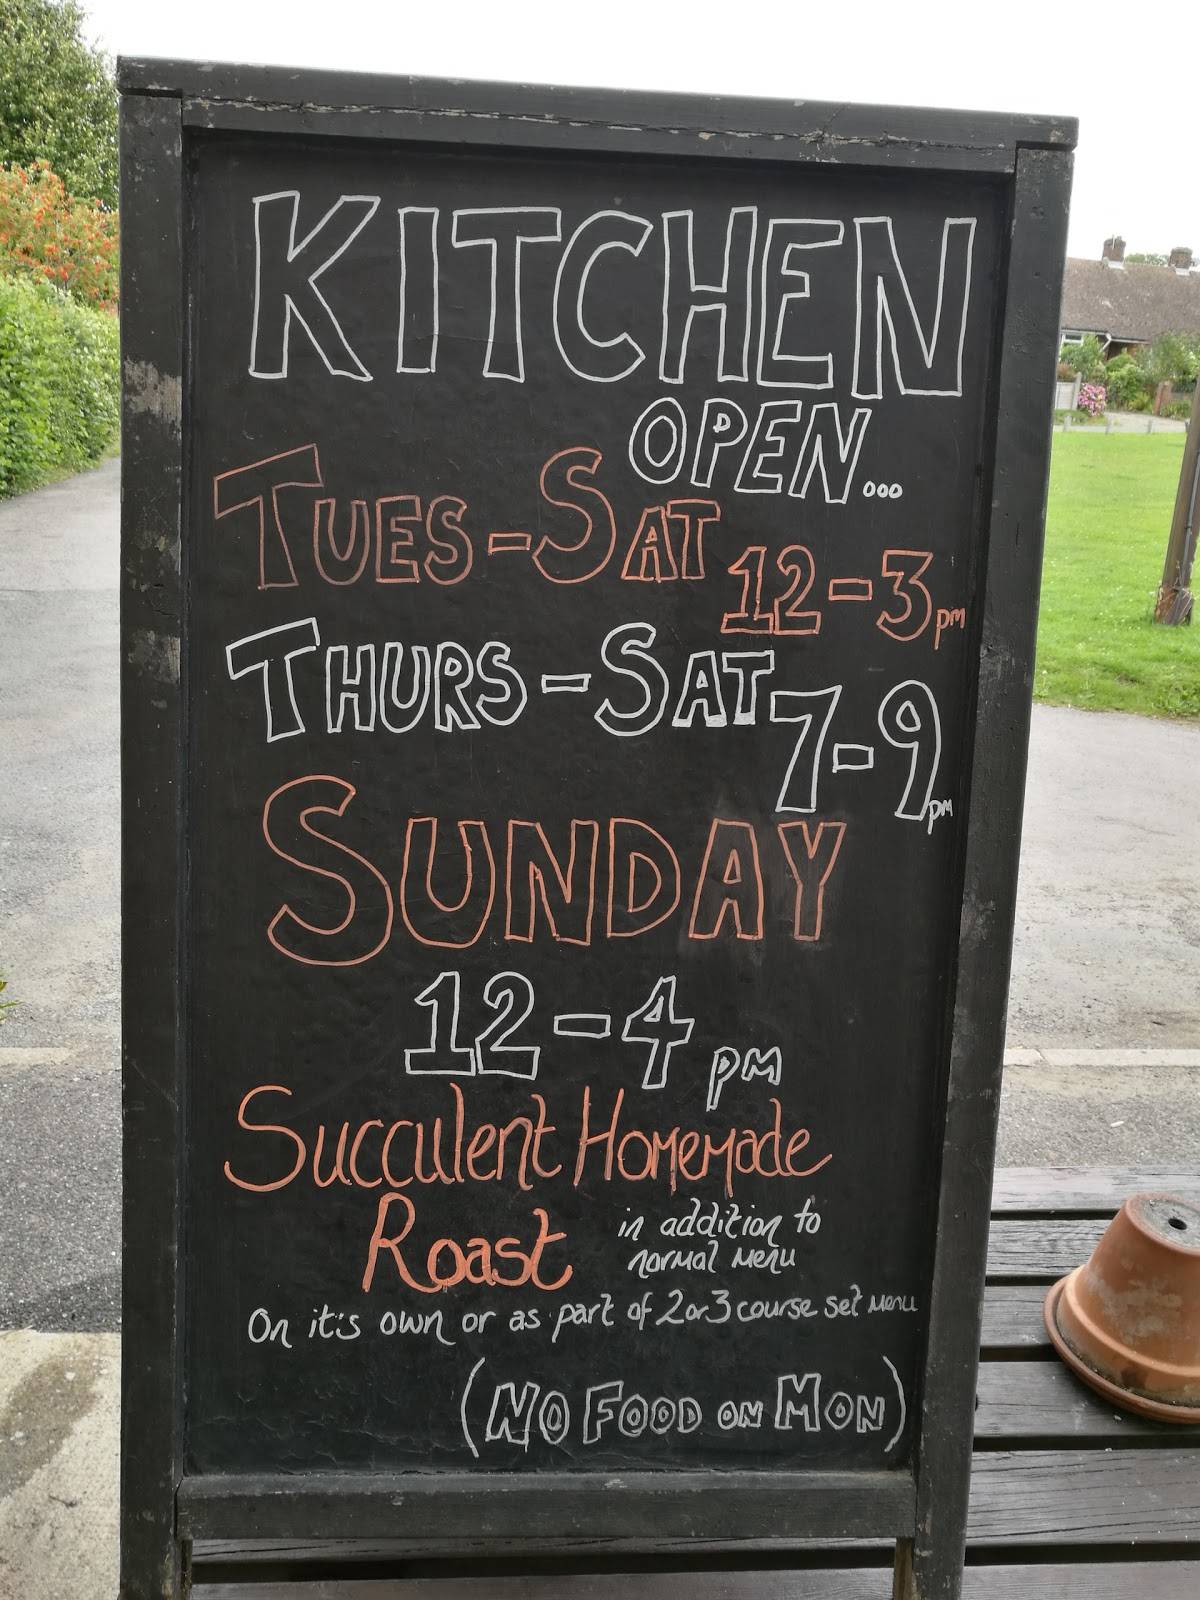 KITCHEN
OPEN...
TUES-SAT 12-3pm
THURS-SAT 7-9pm
SUNDAY
12-4 pm
Succulent Homemade
Roast in addition to
normal menu
On it's own or as part of 2 or 3 course set menu
(NO FOOD ON MON)